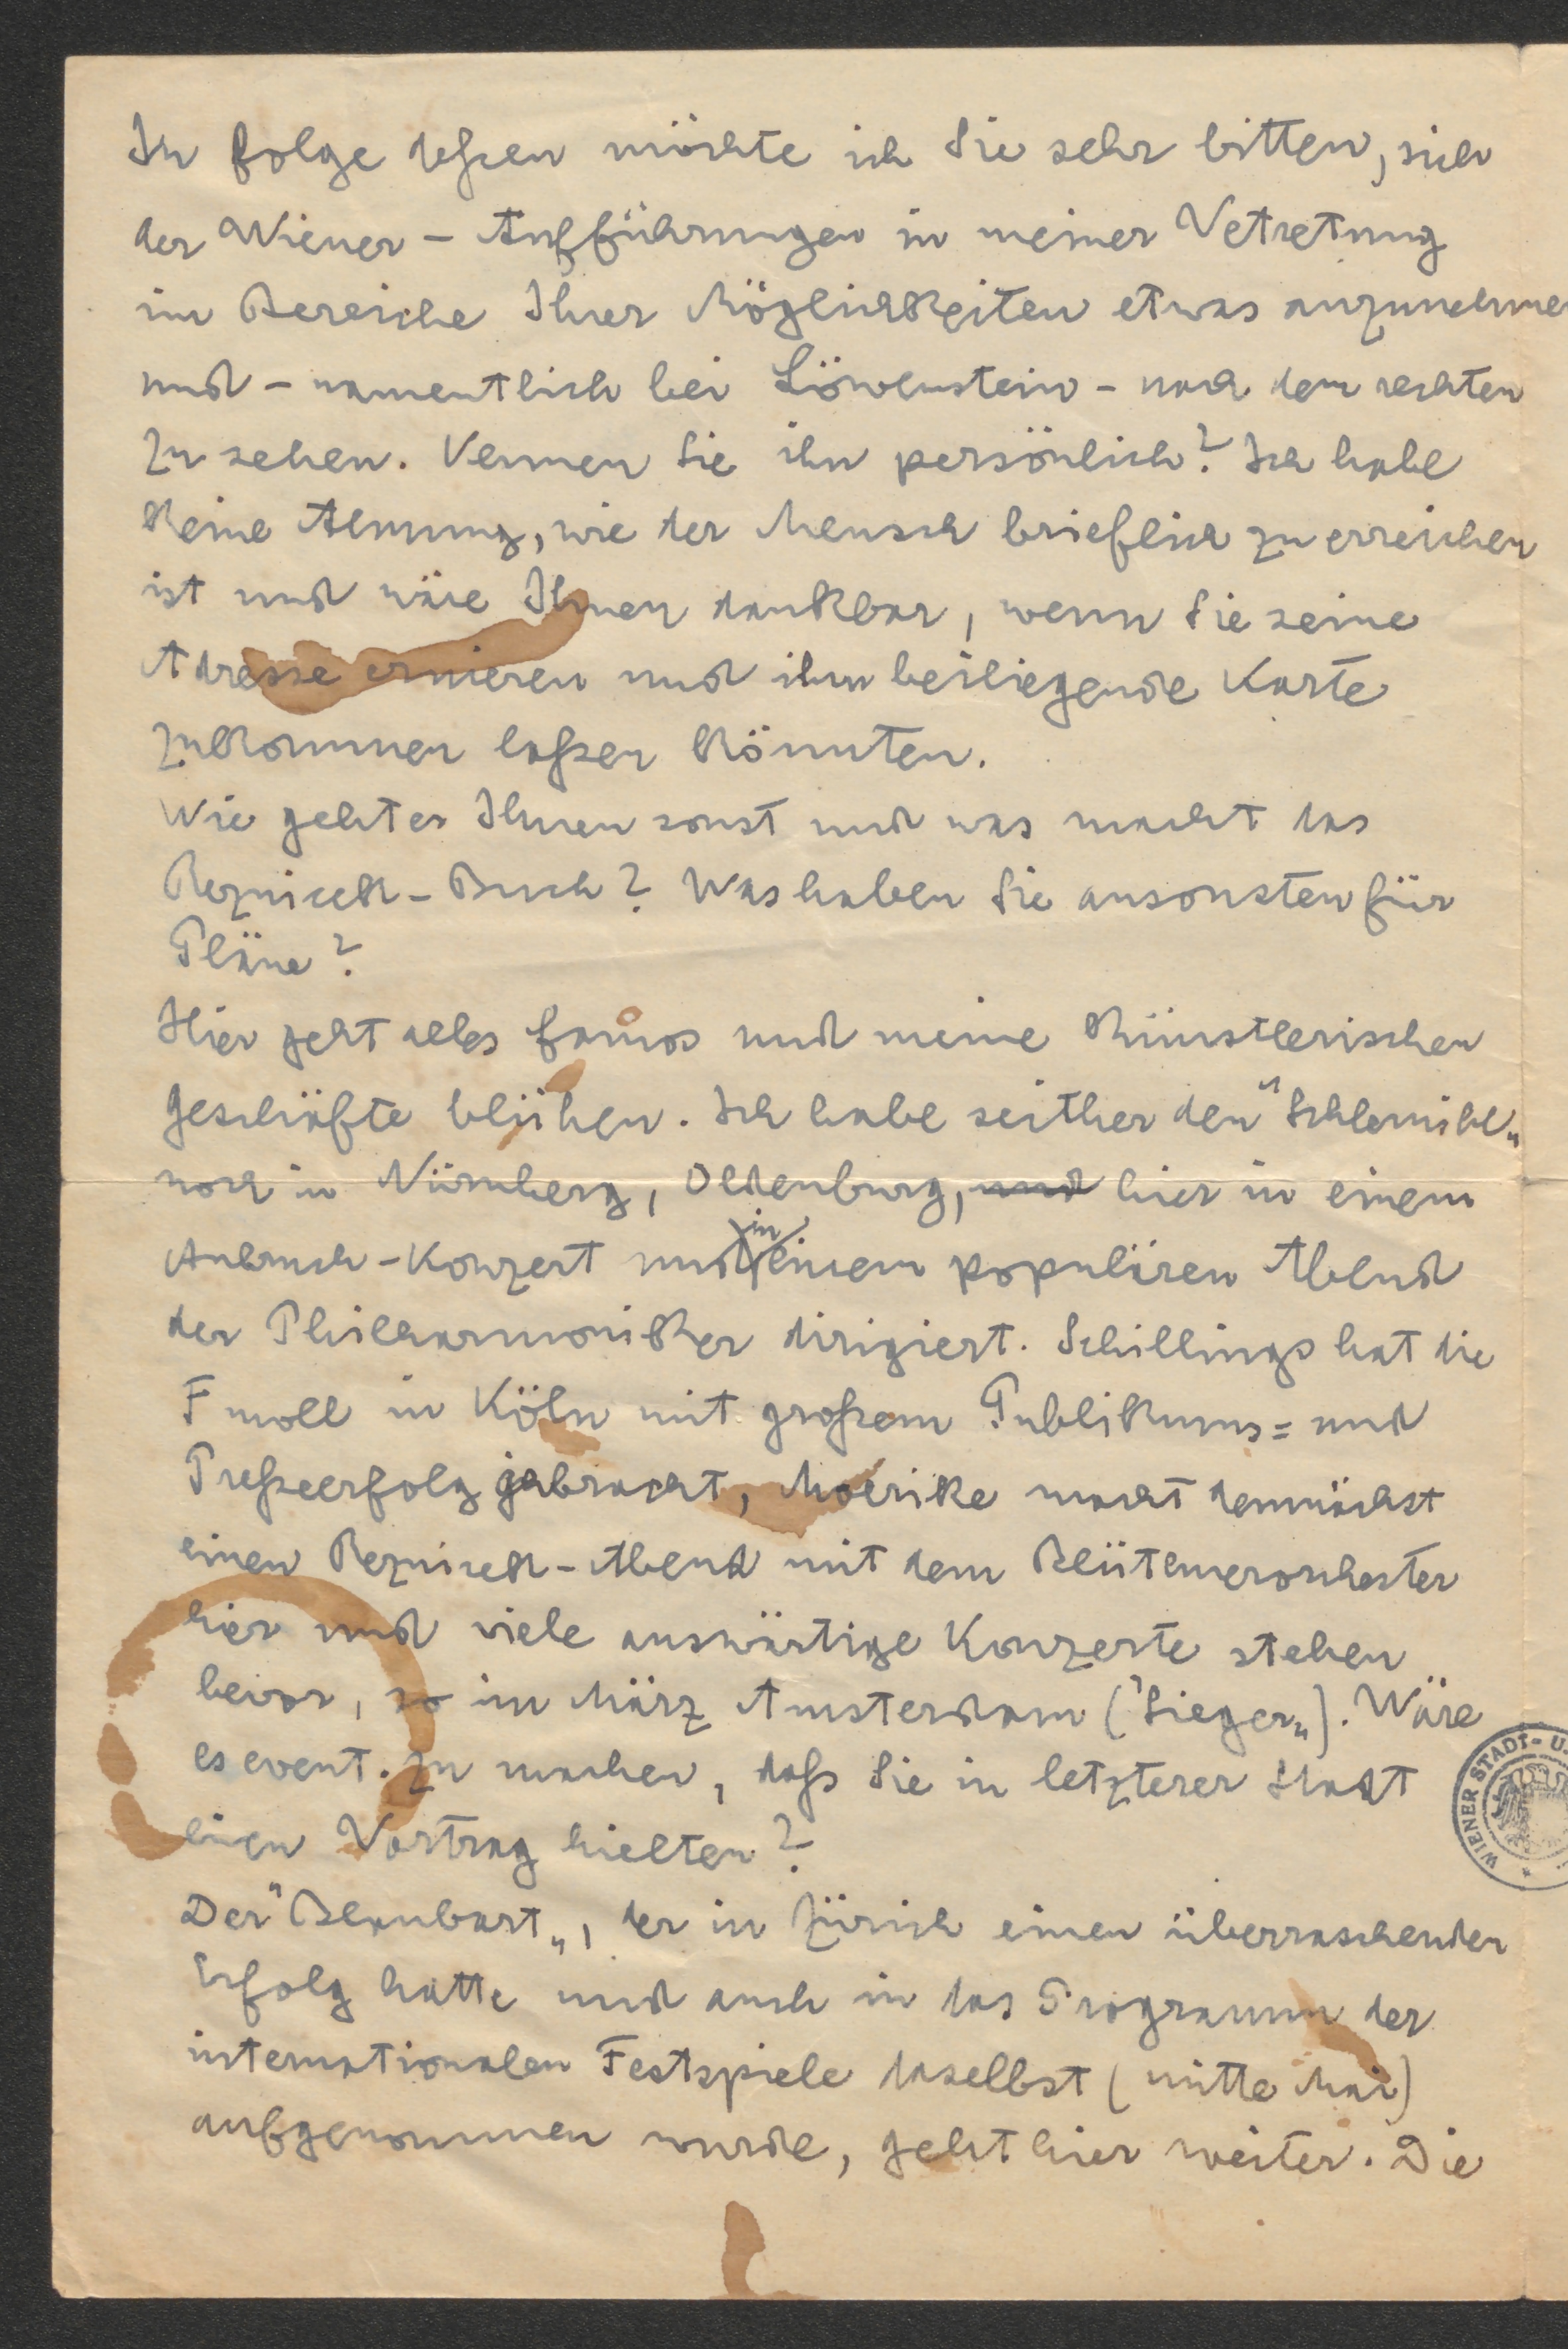 In folge deßen möchte ich Sie sehr bitten, sich
der Wiener - Aufführungen in meiner Vetretung
im Bereiche Ihrer Möglichkeiten etwas anzunehmen
und - namentlich bei Löwenstein - nach dem rechten
zu sehen. Kennen Sie ihn persönlich? Ich habe
keine Ahnung, wie der Mensch brieflich zu erreichen
ist und wäre Ihnen dankbar, wenn Sie seine
Adresse eruieren und ihm beiliegende Karte
zukommen laßen könnten.
Wie geht es Ihnen sonst und was macht das
Reznicek - Buch? Was haben Sie ansonsten für
Pläne?
Hier geht alles famos und meine künstlerischen
Geschäfte blühen. Ich habe seither den "Schlemihl„
noch in Nürnberg, Oldenburg, und hier in einem
Anbruch - Konzert und in einem populären Abend
der Philharmoniker dirigiert. Schillings hat die
F moll in Köln mit großem Publikums= und
Preßeerfolg gebracht, Moerike macht demnächst
einen Reznicek - Abend mit dem Blüthnerorchester
hier und viele auswärtige Konzerte stehen
bevor, so im März Amsterdam ("Sieger„). Wäre
es event. zu machen, daß Sie in letzterer Stadt
einen Vortrag hielten?
Der "Blaubart„, der in Zürich einen überraschenden
Erfolg hatte und auch in das Programm der
internationalen Festspiele daselbst (mitte Mai)
aufgenommen wurde, geht hier weiter. Die
WIENER STADT- U.